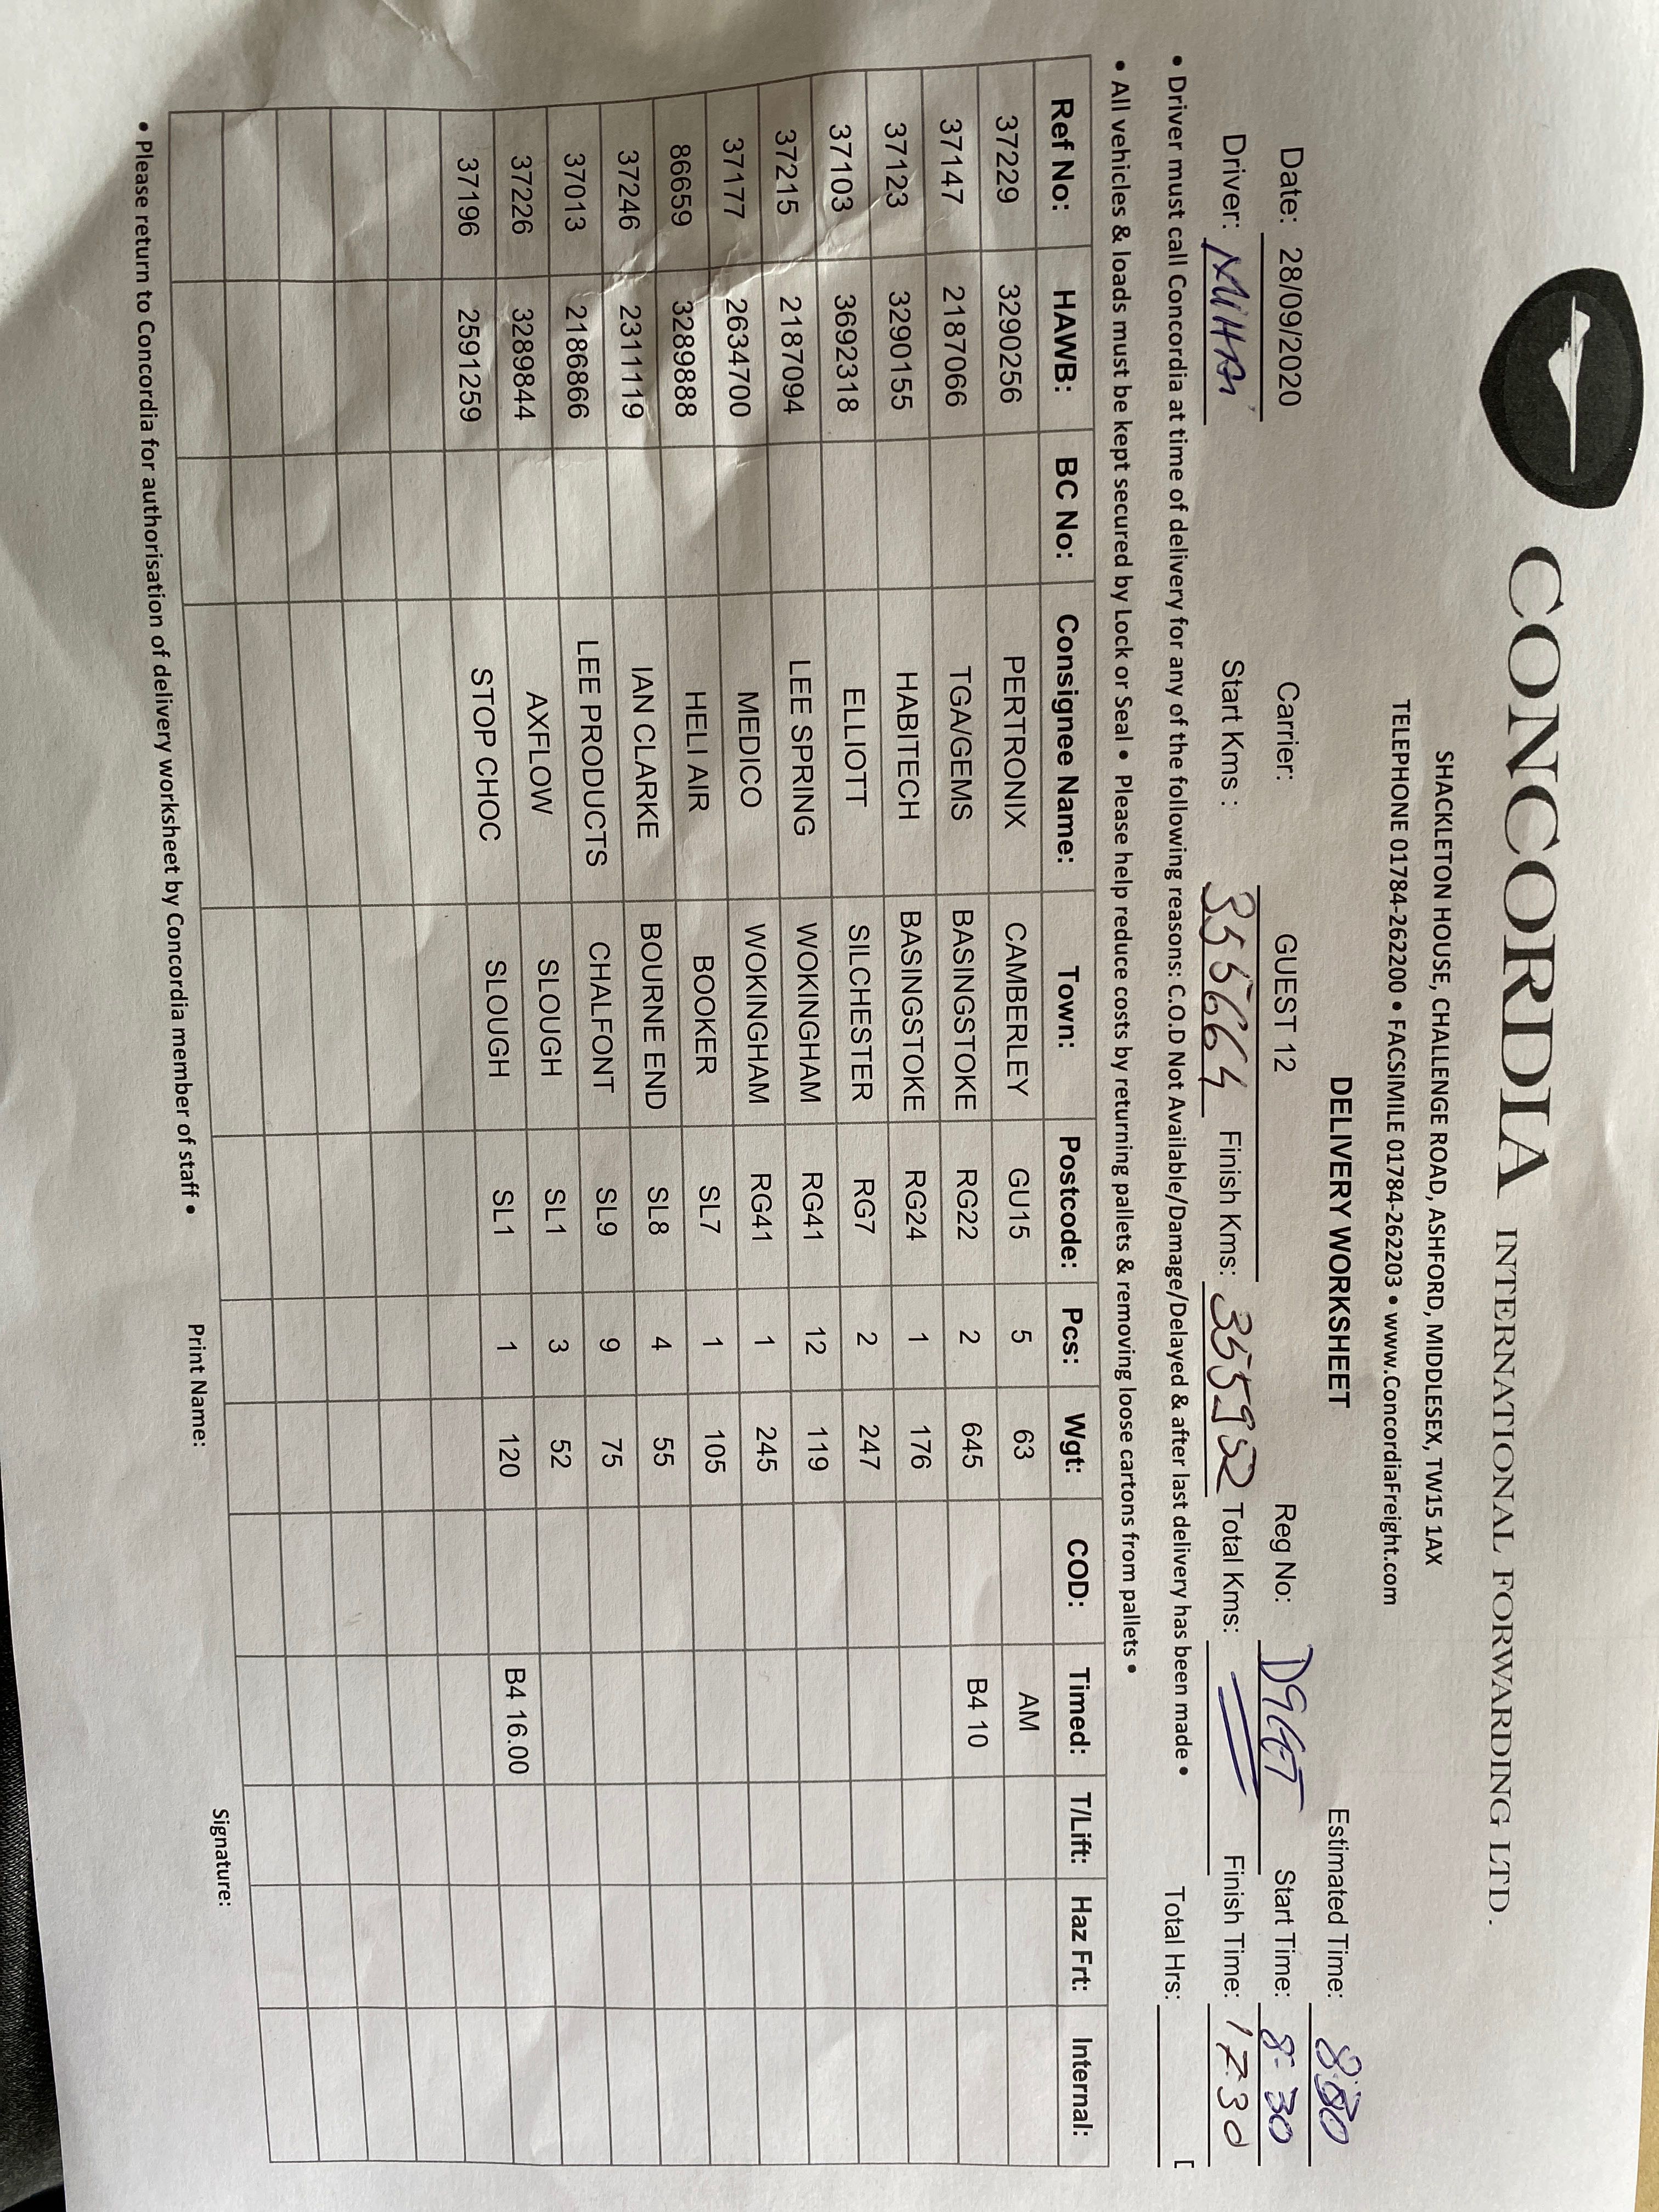 CONCORDIA INTERNATIONAL FORWARDING LTD.
SHACKLETON HOUSE, CHALLENGE ROAD, ASHFORD, MIDDLESEX, TW15 1AX
TELEPHONE 01784-262200 • FACSIMILE 01784-262203 • www.ConcordiaFreight.com
DELIVERY WORKSHEET
Estimated Time:
Date: 28/09/2020 Carrier: GUEST 12 Reg No: Start Time: 8-30
Driver: MIHAI Start Kms : 355664 Finish Kms: 355952 Total Kms: Finish Time: 1730
Total Hrs: [
• Driver must call Concordia at time of delivery for any of the following reasons: C.O.D Not Available/Damage/Delayed & after last delivery has been made •
• All vehicles & loads must be kept secured by Lock or Seal • Please help reduce costs by returning pallets & removing loose cartons from pallets •
Ref No: HAWB: BC No: Consignee Name: Town: Postcode: Pcs: Wgt: COD: Timed: T/Lift: Haz Frt: Internal:
37229 3290256 PERTRONIX CAMBERLEY GU15 5 63 AM
37147 2187066 TGA/GEMS BASINGSTOKE RG22 2 645 B4 10
37123 3290155 HABITECH BASINGSTOKE RG24 1 176
37103 3692318 ELLIOTT SILCHESTER RG7 2 247
37215 2187094 LEE SPRING WOKINGHAM RG41 12 119
37177 2634700 MEDICO WOKINGHAM RG41 1 245
86659 3289888 HELI AIR BOOKER SL7 1 105
37246 2311119 IAN CLARKE BOURNE END SL8 4 55
37013 2186866 LEE PRODUCTS CHALFONT SL9 9 75
37226 3289844 AXFLOW SLOUGH SL1 3 52
37196 2591259 STOP CHOC SLOUGH SL1 1 120 B4 16.00
• Please return to Concordia for authorisation of delivery worksheet by Concordia member of staff • Print Name: Signature: